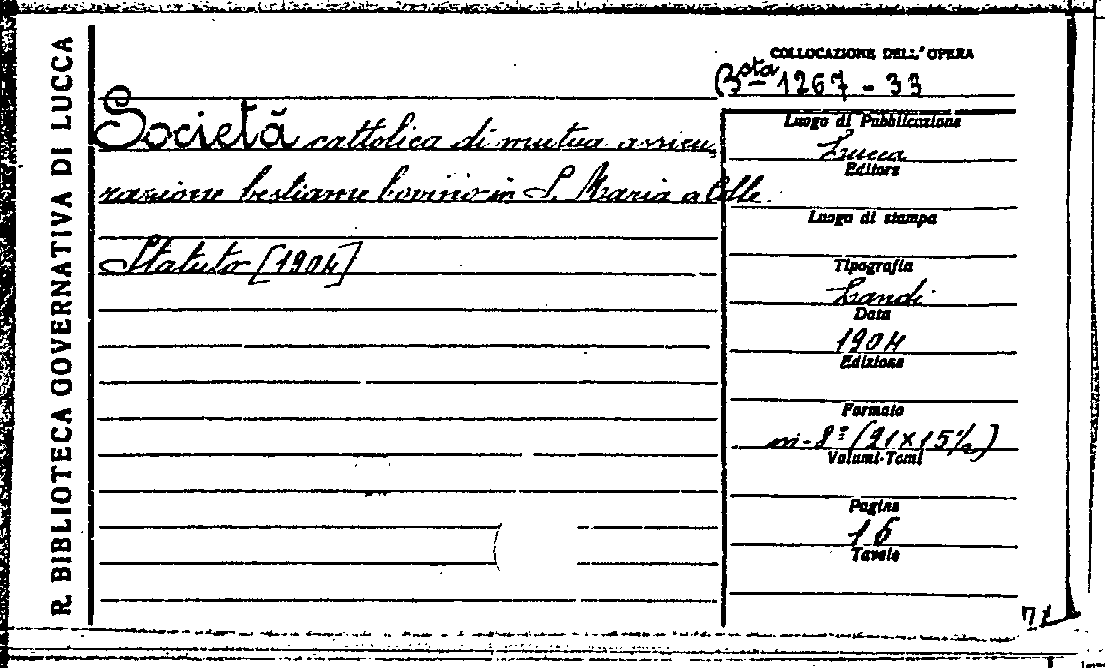 R. BIBLIOTECA GOVERNATIVA DI LUCCA
COLLOCAZIONE DELL'OPERA
Bsta 1267 - 33
Società cattolica di mutua assicu
razione bestiame bovino in S. Maria a Colle.
Statuto [1904]
Luogo di Pubblicazione
Lucca
Editore
Luogo di stampa
Tipografia
Landi
Data
1904
Edizione
Formato
in-8º (21x15½)
Volumi-Tomi
Pagine
16
Tavole